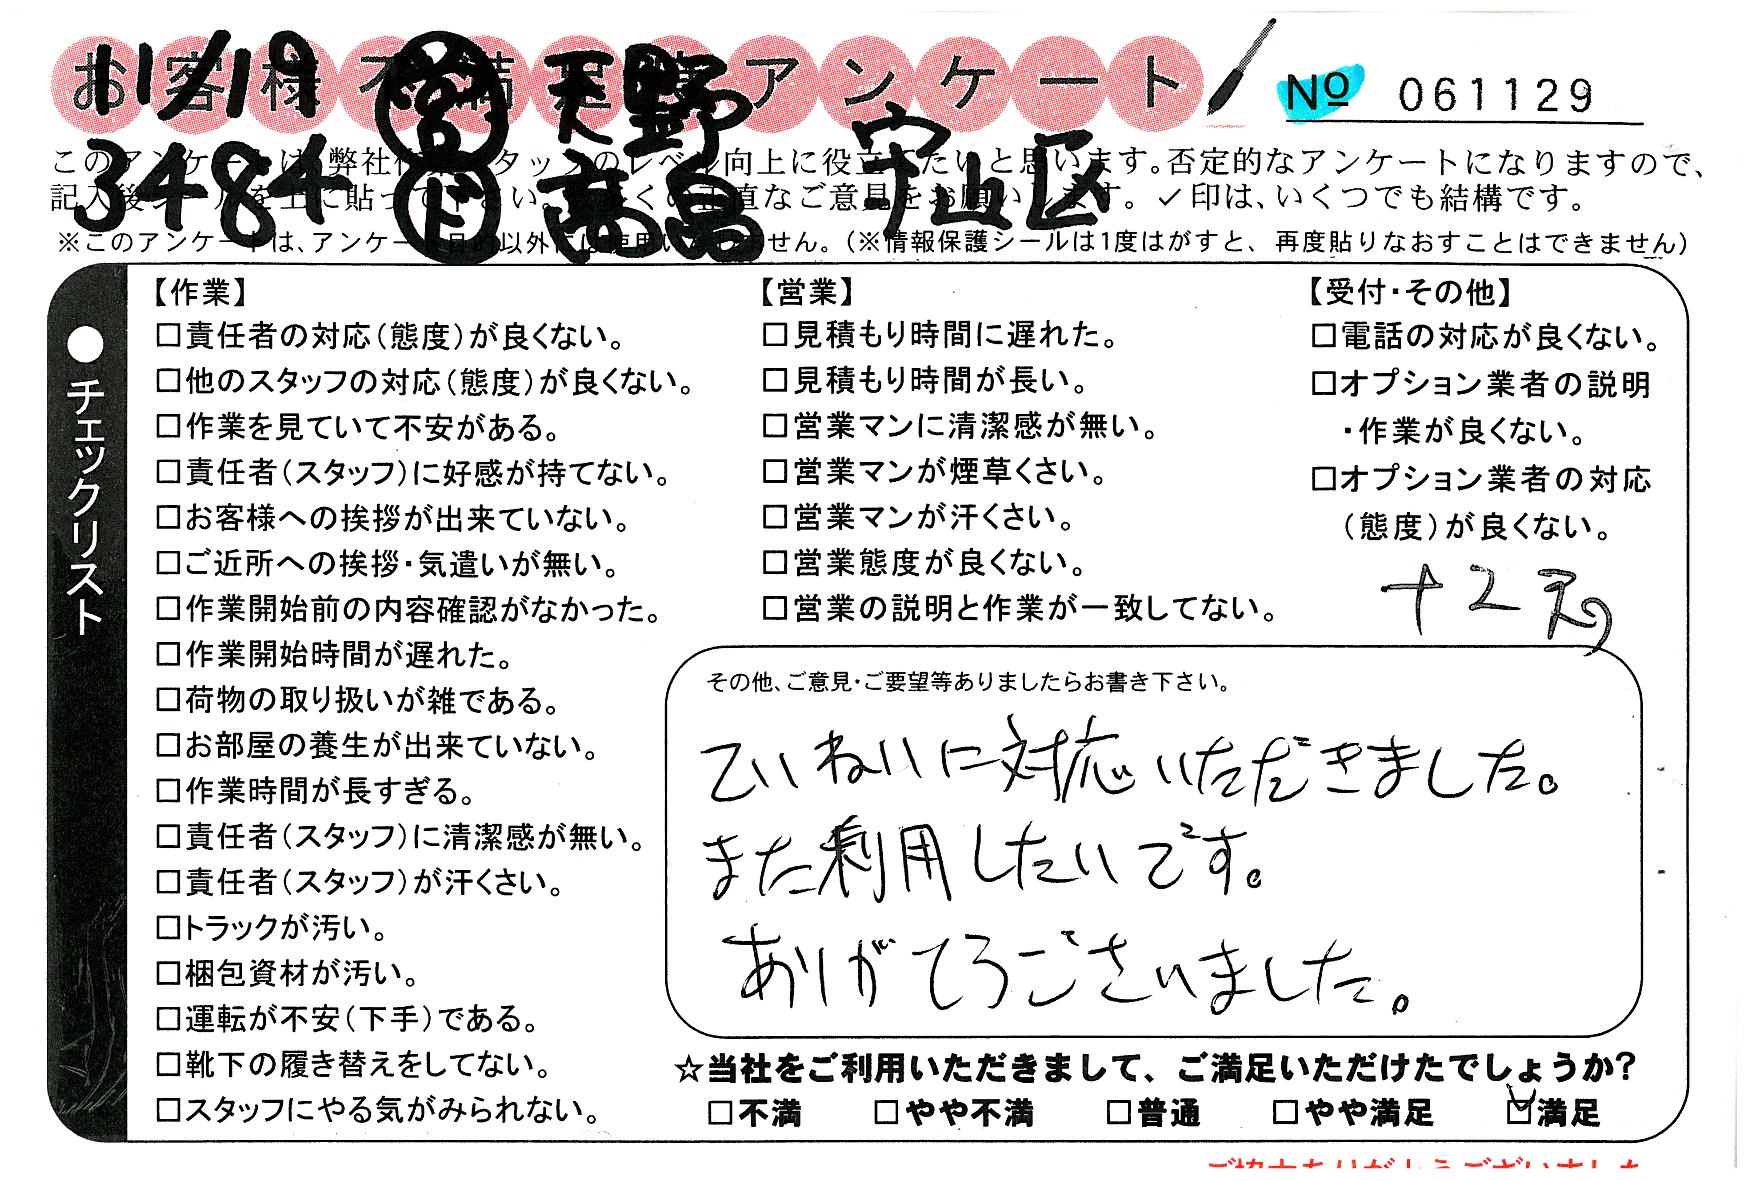 お客様不満足度アンケート
No 061129
11/19 営 天野 守山区
3484 ド 高畠
このアンケートは、弊社作業スタッフのレベル向上に役立てたいと思います。否定的なアンケートになりますので、
記入後シールを上に貼って下さい。 正直なご意見をお願いします。✓印は、いくつでも結構です。
※このアンケートは、アンケート目的以外には使用いたしません。(※情報保護シールは1度はがすと、再度貼りなおすことはできません)
●チェックリスト
【作業】
□責任者の対応(態度)が良くない。
□他のスタッフの対応(態度)が良くない。
□作業を見ていて不安がある。
□責任者(スタッフ)に好感が持てない。
□お客様への挨拶が出来ていない。
□ご近所への挨拶・気遣いが無い。
□作業開始前の内容確認がなかった。
□作業開始時間が遅れた。
□荷物の取り扱いが雑である。
□お部屋の養生が出来ていない。
□作業時間が長すぎる。
□責任者(スタッフ)に清潔感が無い。
□責任者(スタッフ)が汗くさい。
□トラックが汚い。
□梱包資材が汚い。
□運転が不安(下手)である。
□靴下の履き替えをしてない。
□スタッフにやる気がみられない。
【営業】
□見積もり時間に遅れた。
□見積もり時間が長い。
□営業マンに清潔感が無い。
□営業マンが煙草くさい。
□営業マンが汗くさい。
□営業態度が良くない。
□営業の説明と作業が一致してない。
【受付・その他】
□電話の対応が良くない。
□オプション業者の説明
・作業が良くない。
□オプション業者の対応
(態度)が良くない。
その他、ご意見・ご要望等ありましたらお書き下さい。
ていねいに対応いただきました。
また利用したいです。
ありがとうございました。
☆当社をご利用いただきまして、ご満足いただけたでしょうか?
□不満 □やや不満 □普通 □やや満足 ☑満足
ご協力ありがとうございました